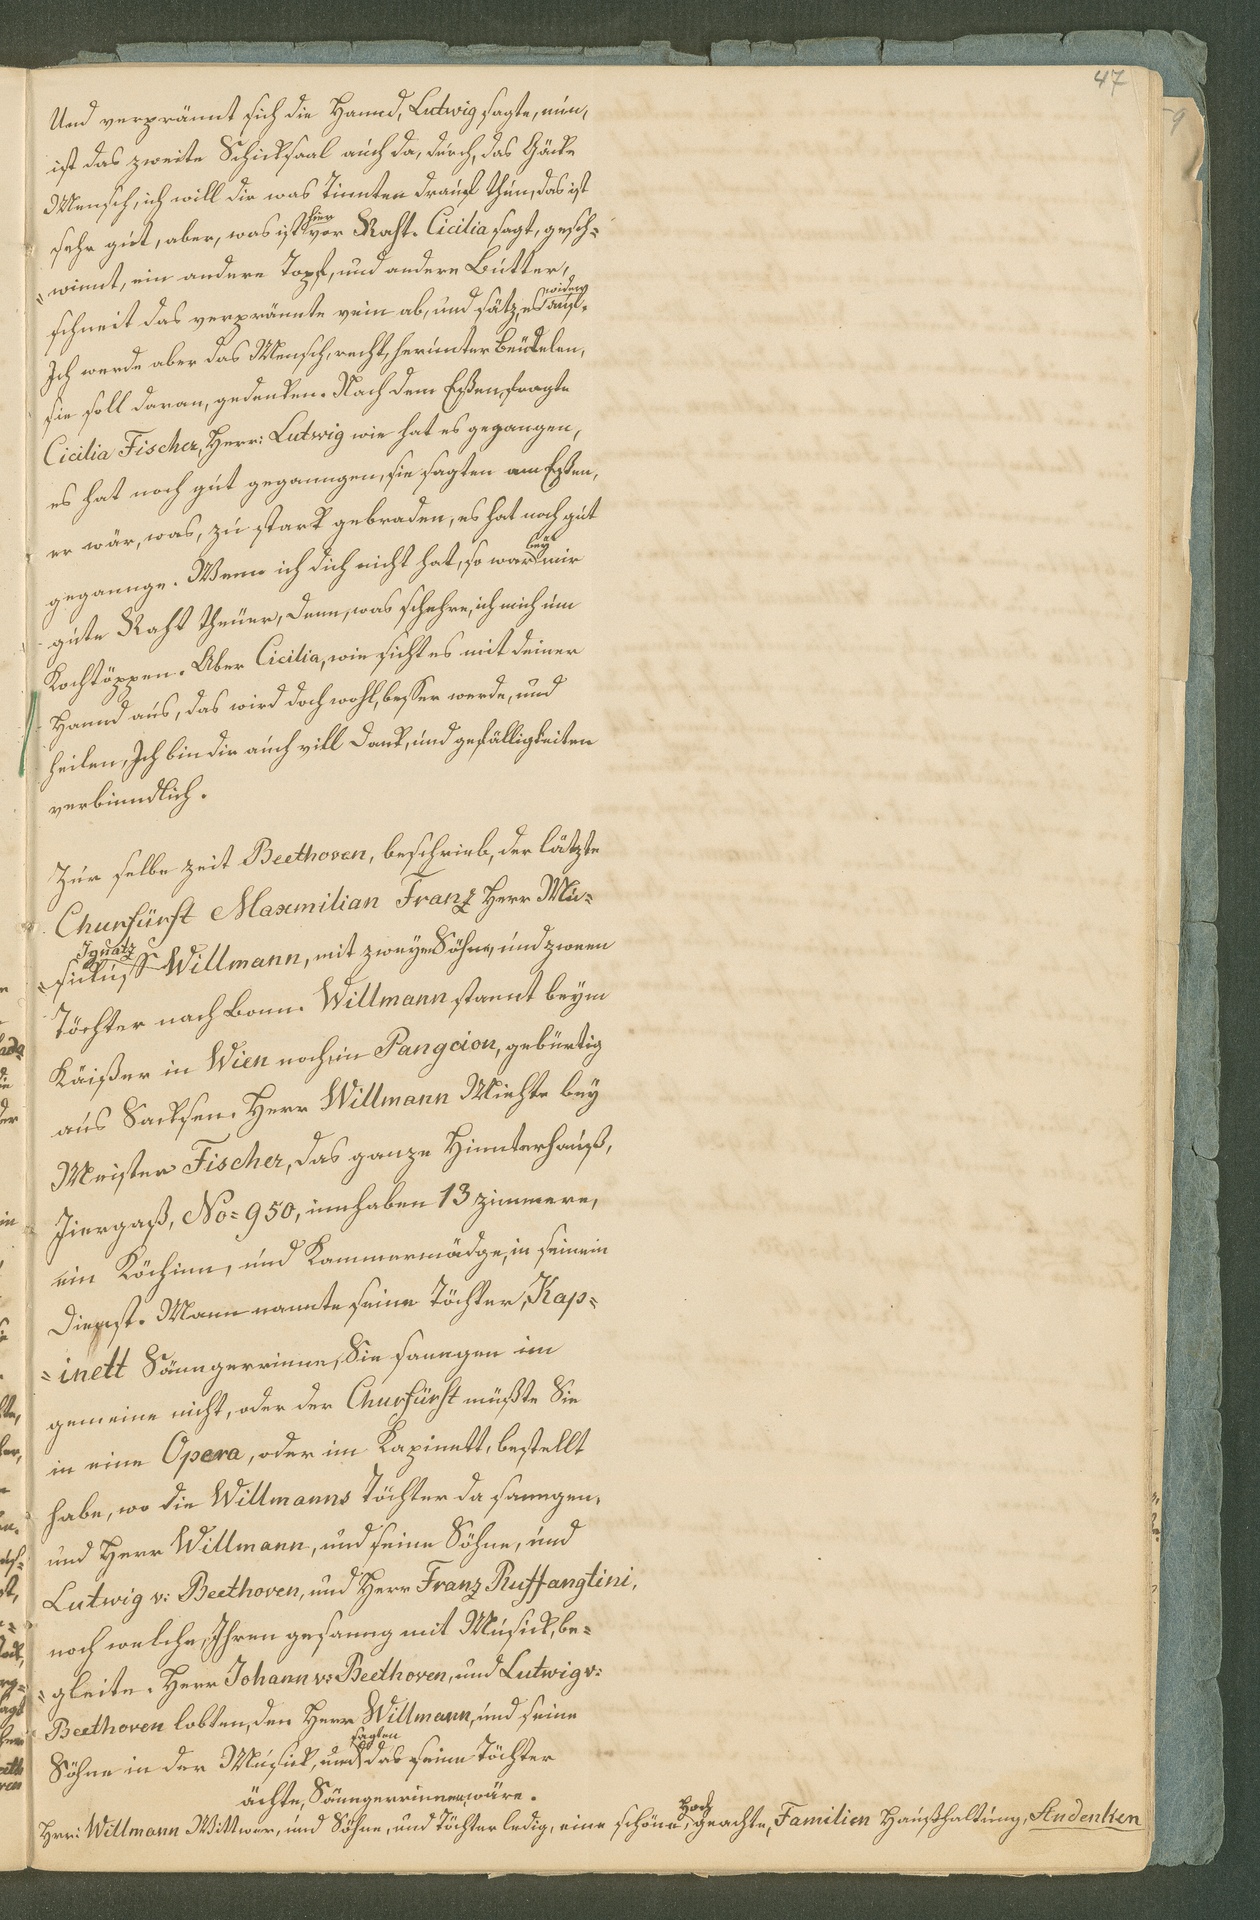 47
Und verprännt sich die Hannd, Lutwig sagte, nun,
ist das zweite Schicksaal auch da, durch, das Gäcke
Mensch, ich will dir was Tinnten drauf thun, das ist
sehr gut, aber, was ist hier vor Raht. Cicilia sagt, gesch=
"winnt, ein andere Topf, und andere Butter,
schneit das verprännte rein ab, und sätz, es widerr auf.
Ich werde aber das Mensch, recht, herunter beütelen,
sie soll daran, gedenken. Nach dem Eßen, fragte
Cicilia Fischer, Herr: Lutwig wie hat es gegangen,
es hat noch gut geganngen, sie sagten am Eßen,
er wär, was, zu stark gebraden, es hat noch gut
geganngen. Wenn ich dich nicht hat, so war bey mir
gute Raht theüer, denn, was schehre, ich mich um
Kochtöppen. Aber Cicilia, wie sicht es mit deiner
Hannd aus, das wird doch wohl, besser werde, und
heilen, Ich bin dir auch vill Dank, und gefälligkeiten
verbinndlich.
Zur selbe zeit Beethoven, beschrieb, der lätzte
Churfürst Maxmilian Franz Herr Mu=
sickuss Ignatz Willmann, mit zweyen Söhne, und zween
Töchter nach Bonn. Willmann stannt beym
Käißer in Wien noch, in Pangcion, gebürtig
aus Sacksen. Herr Willmann Miehte bey
Meister Fischer, das ganze Hinnterhauß,
Jiergaß, No= 950, innhaben 13 zimmere,
ein Köchinn, und Kammermädge, in seinem
Dienst. Mann nannte seine Töchter, Kap=
=inett Sänngerrinne, Sie sanngen im
gemeine nicht, oder der Churfürst müßte Sie
in eine Opera, oder im Kapinett, bestellt
habe, wo die Willmanns Töchter da sanngen,
und Herr Willmann, und seine Söhne, und
Lutwig v: Beethoven, und Herr Franz Ruffangtini,
noch welche, Ihren gesanng mit Musick, be=
"gleite. Herr Johann v: Beethoven, und Lutwig v:
Beethoven lobten, den Herr Willmann, und seine
Söhne in der Musick, und sagten das seine Töchter
ächte, Sänngerrinnen, wäre.
Herr: Willmann Wittwer, und Söhne, und Töchter ledig, eine schöne, Hochgeachte, Familien Haußhaltung, Andenken